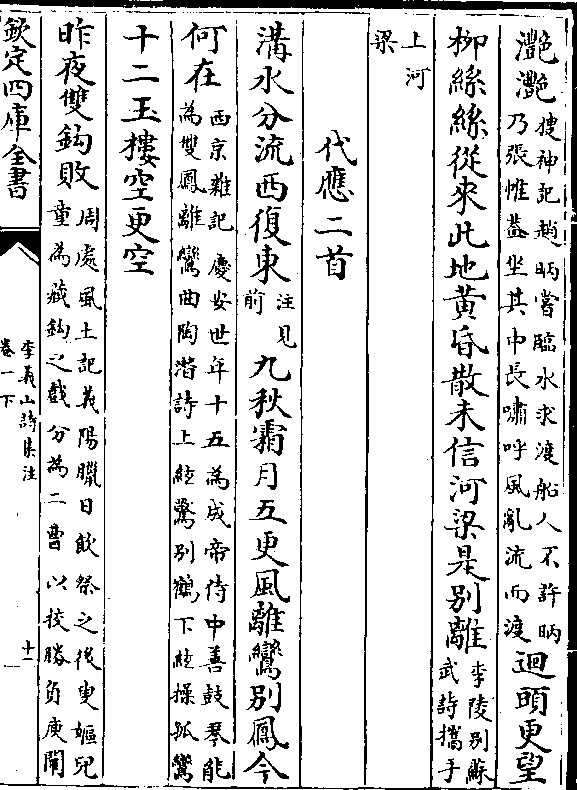 灔灔搜神記趙昞嘗臨水求渡船人不許昞
乃張帷蓋坐其中長嘯呼風亂流而渡迴頭更望
柳絲絲從來此地黃昏散未信河梁是别離李陵别蘇
武詩攜手
上河
梁
代應二首
溝水分流西復東注見
前九秋霜月五更風離鸞别鳳今
何在西京雜記慶安世年十五為成帝侍中善鼓琴能
為雙鳳離鸞曲陶潛詩上絃驚别鶴下絃操孤鸞
十二玉樓空更空
昨夜雙鈎敗周處風土記義陽臘日飲祭之後叟嫗兒
童為藏鈎之戲分為二曹以挍勝負庾闡
欽定四庫全書
李義山詩集注
卷一下
十一